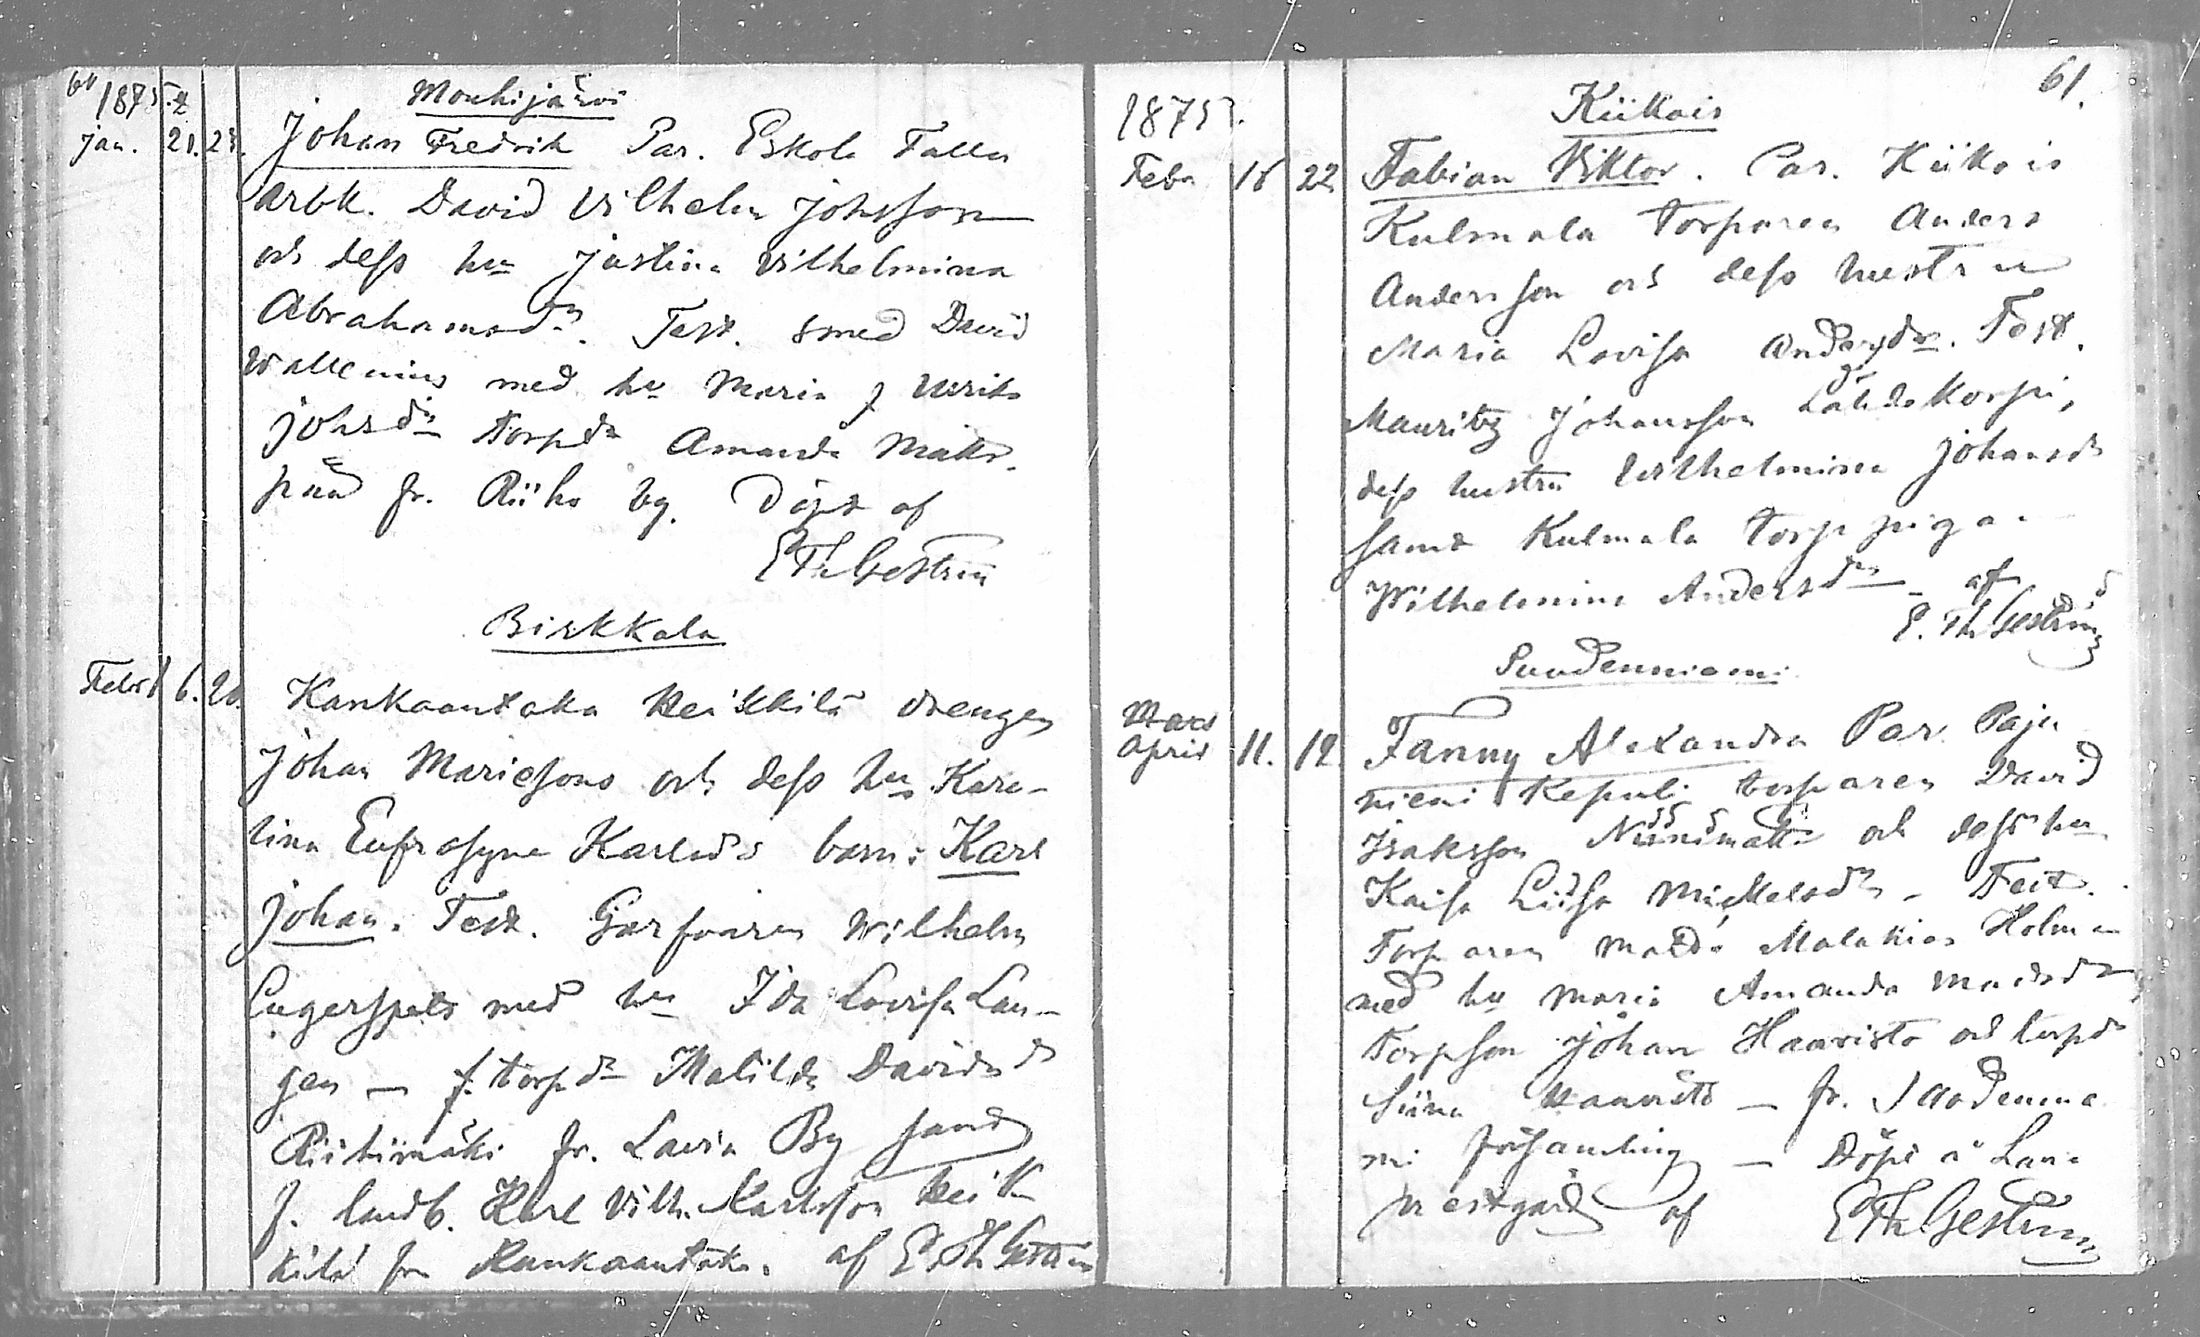 60
1875.
Mouhijärvi
Jan. 21. 23. Johan Fredrik Par. Eskola Talln
arbk. David Vilhelm Johsson
och dess hu Justina Vilhelmina
Abrahamsdr. Test. smed David
Wallenius med hu Maria Ulrika
Johsdr torpdr Amanda Matts-
fr. Riiho by. Döpt af
E Th Gestrin
Birkkala
Febr 6. 20. Kankaantaka Heikkilä drengen
Johan Mariesons och dess hu Karo-
lina Eufrosyne Karlsdrs barn: Karl
Johan. Test. Garfvaren Wilhelm
Lagerspets med hu Ida Lovisa Lau-
gen — f. torpdr Matilda Davidsdr
Riihimäki fr. Lavia By samt
f. landb. Karl Vilh. Karlsson Heik-
kilä fr Kankaantaka. af E. Th Gestrin
61.
1875.
Kiikois
Febr 16 22 Fabian Viktor. Par. Kiikois
Kulmala torparen Anders
Andersson och dess hustru
Maria Lovisa Andersdr. Test.
Mauritz Johansson Lähdekorpi,
dess hustru Wilhelmina Johansdr
samt Kulmala torp piga
Wilhelmina Andersdr — af
E. Th Gestrin
Suodenniemi
Mars
April 11. 12 Fanny Alexandra Par. Paju
niemi Kepuli torparen David
Isaksson Niinimatti och dess hu
Kaisa Lisa Mickelsdr — Test.
Torparen Matts Malakias Holm
med hu Maria Amanda Madsdr
Torpson Johan Haavisto och torpdr
Siina Haavisto — fr. Suodennie
mi församling — Döpt å Lavia
prestgård af E Th Gestrin